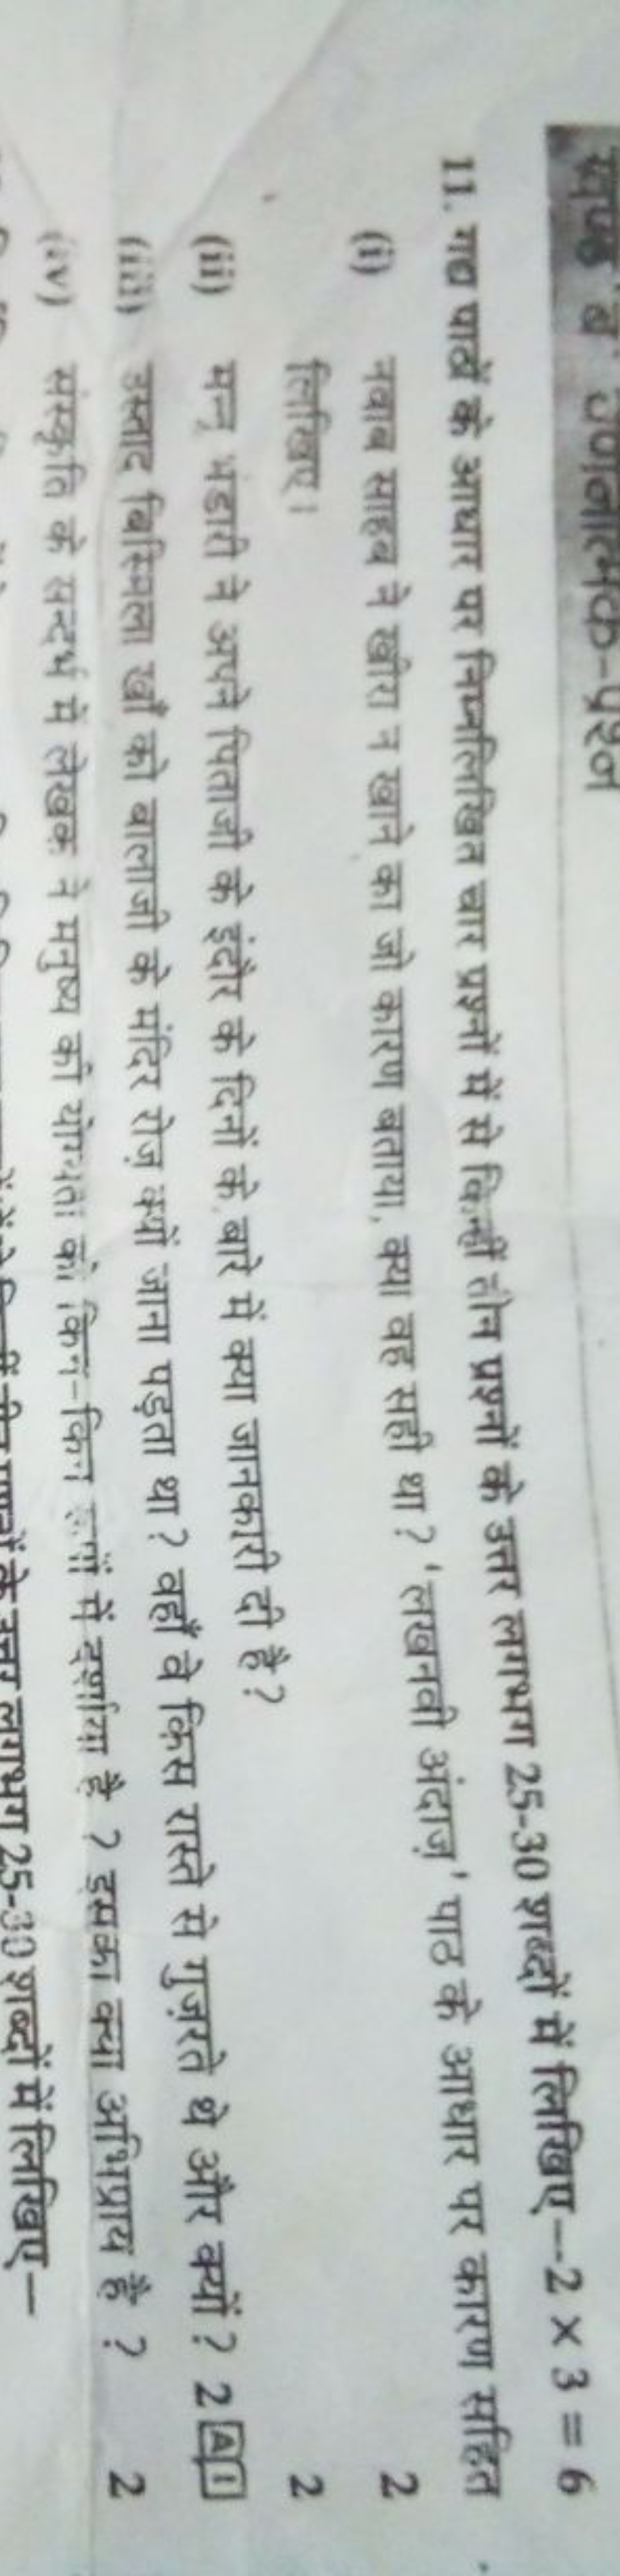 खण्ड 'ब' वर्णनात्मक-प्रश्न
11. गद्य पाठों के आधार पर निम्नलिखित चार प्रश्नों में से किन्हीं तीन प्रश्नों के उत्तर लगभग 25-30 शब्दों में लिखिए--2 × 3 = 6
(i) नवाब साहब ने खीरा न खाने का जो कारण बताया, क्या वह सही था? 'लखनवी अंदाज़' पाठ के आधार पर कारण सहित
लिखिए। 2
(ii) मन्नू भंडारी ने अपने पिताजी के इंदौर के दिनों के बारे में क्या जानकारी दी है? 2
(iii) उस्ताद बिस्मिला खाँ को बालाजी के मंदिर रोज़ क्यों जाना पड़ता था? वहाँ वे किस रास्ते से गुज़रते थे और क्यों? 2 AI
(iv) संस्कृति के सन्दर्भ में लेखक ने मनुष्य की योग्यता को किन-किन रूपों में दर्शाया है ? इसका क्या अभिप्राय है ? 2
के उत्तर लगभग 25-30 शब्दों में लिखिए–